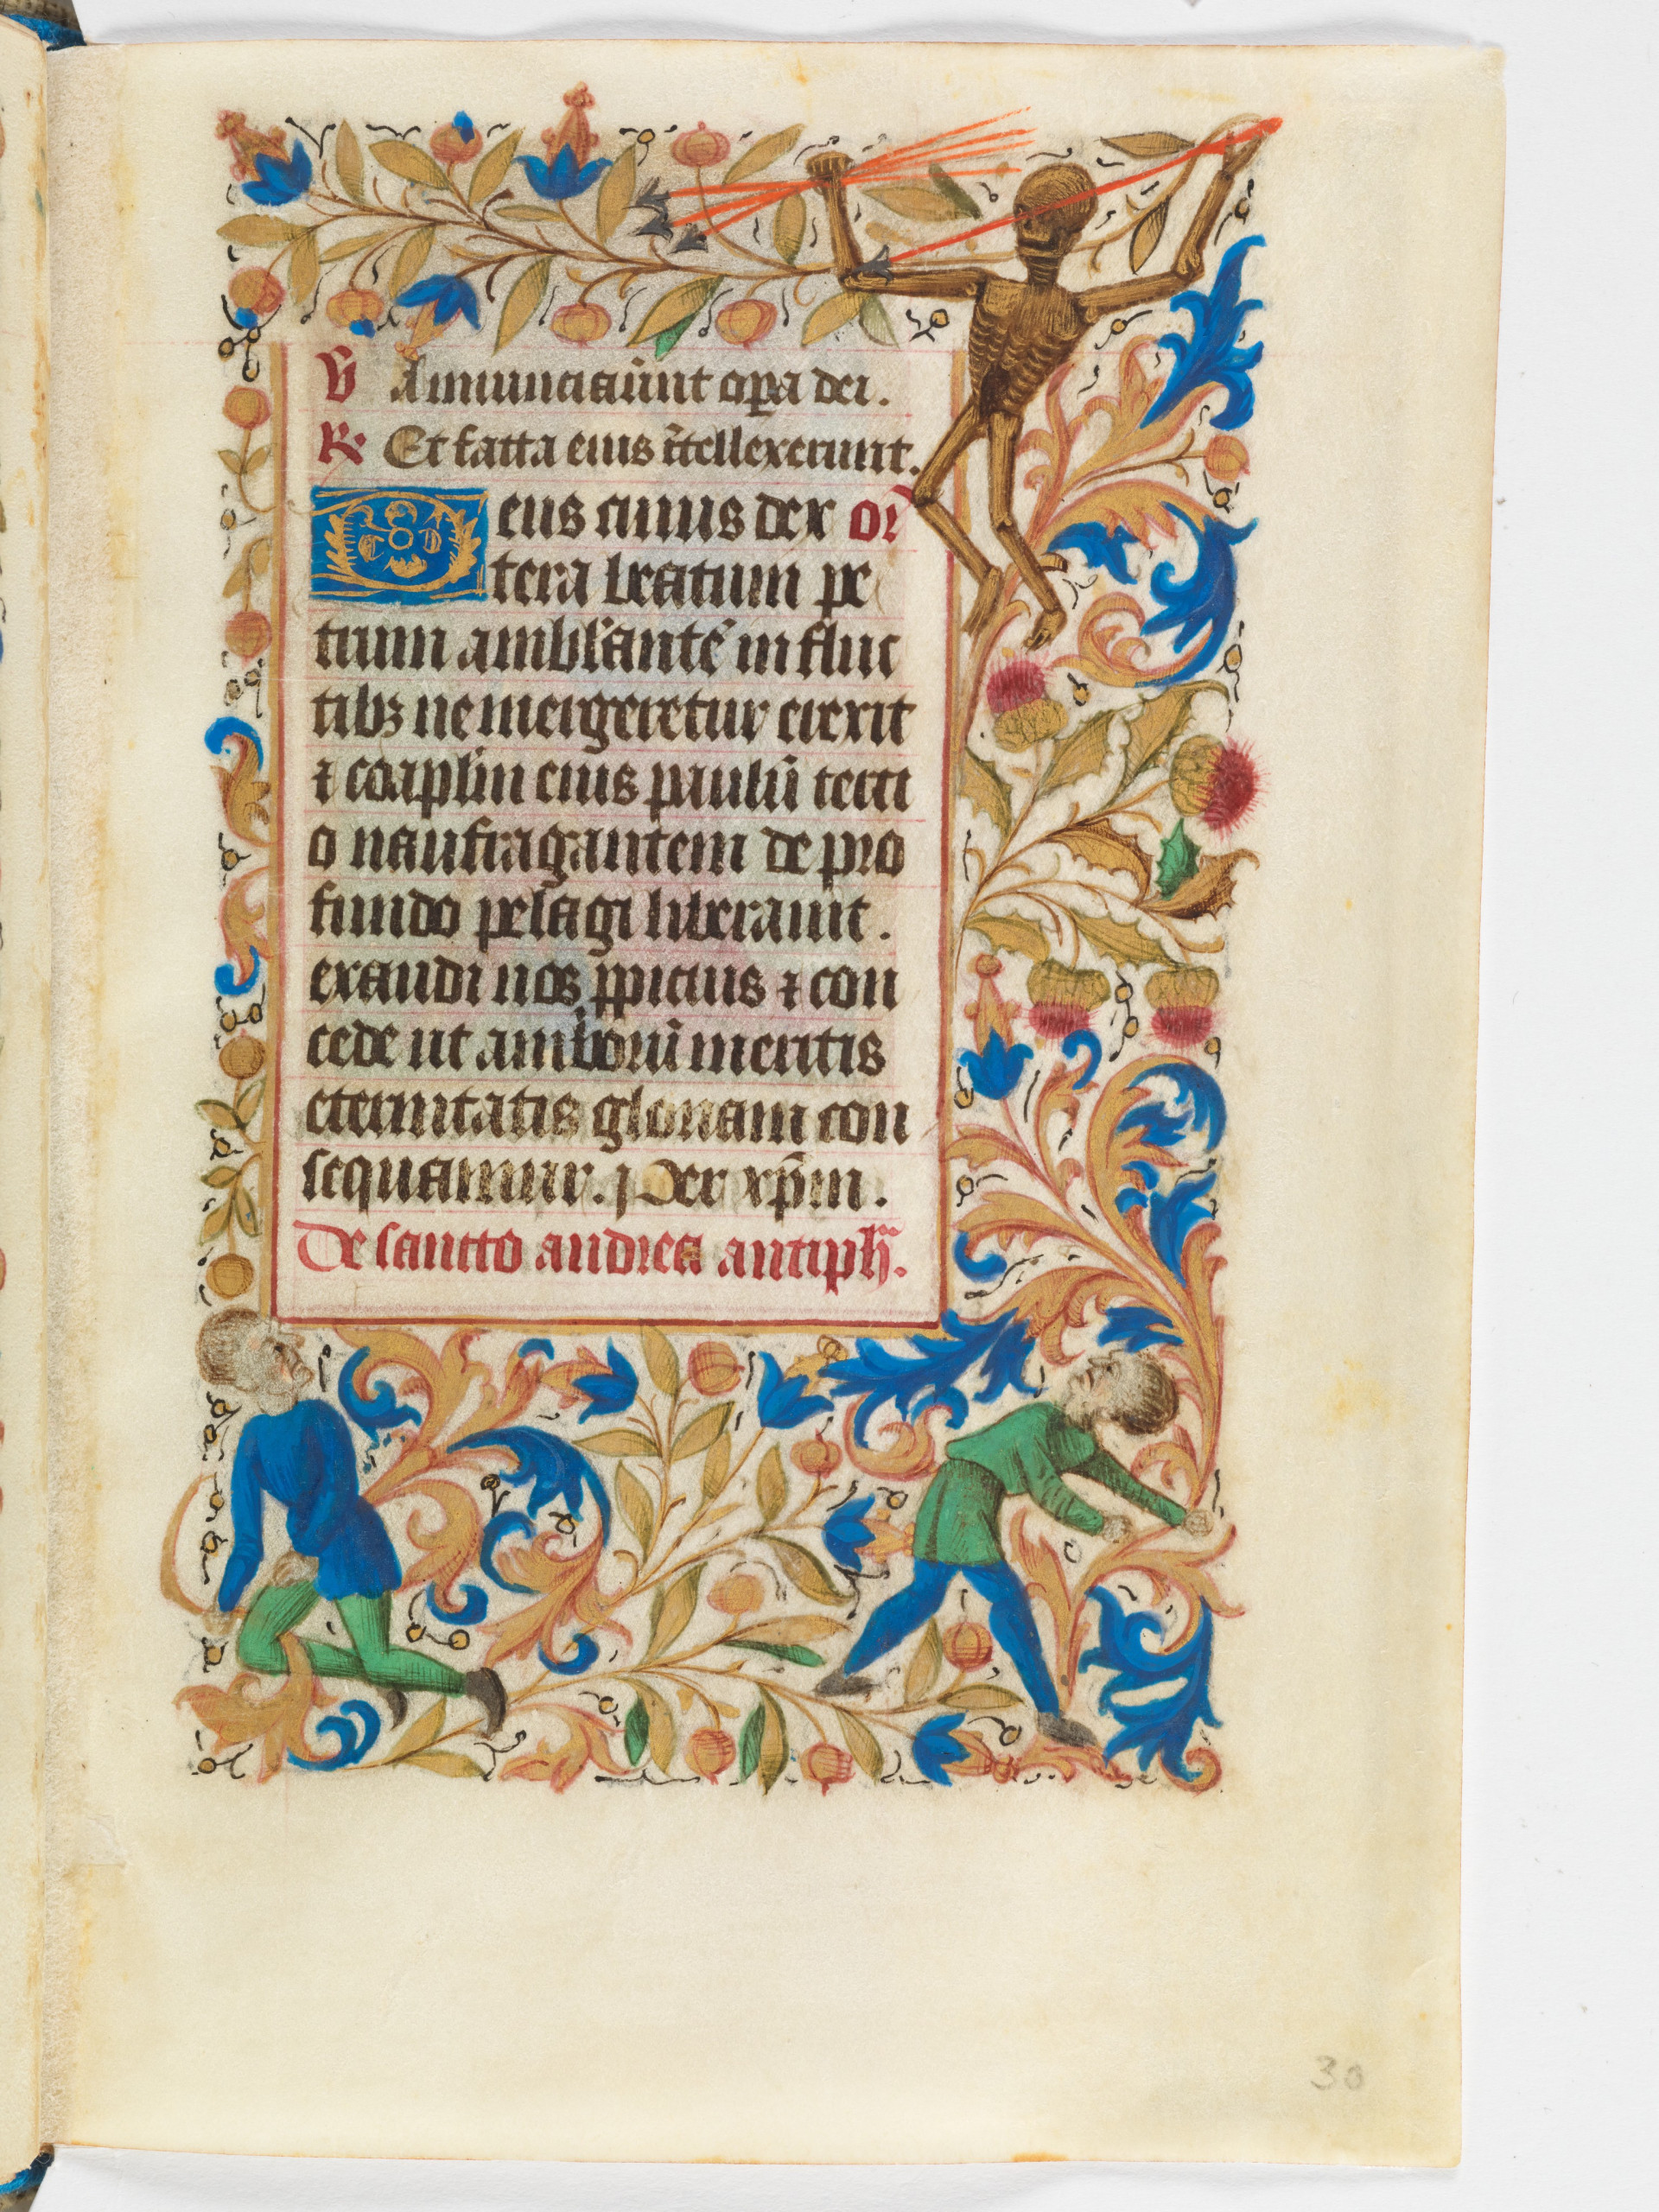 V̄ Annunciaūnt oꝑa dei.
R̄ Et facta eius ītellexerunt.
Deus cuius dex or̄
tera beatum pe
trum ambl̓antē in fluc
tibꝫ ne mergeretur erexit
⁊ coapl̄m eius paulū terci
o naufragantem de pro
fundo pelagi liberauit.
exaudi nos ꝓpicius ⁊ con
cede ut amborū meritis
eternitatis gloriam con
sequamur. Per xp̄m.
De sancto andrea antiph̄.
30